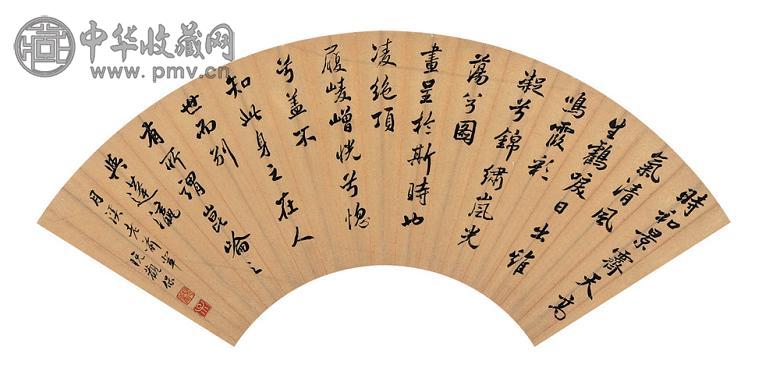 中华收藏网
www.pmv.cn
時和景霽天高
氣清風
生鶴唳日出雉
鳴霞彩
凝兮錦繡嵐光
蕩兮圖
畫呈於斯時也
凌絶頂
履崚嶒恍兮惚
兮蓋不
知此身之在人
世而別
有所謂崑崙之
與蓬瀛
月溪老前輩